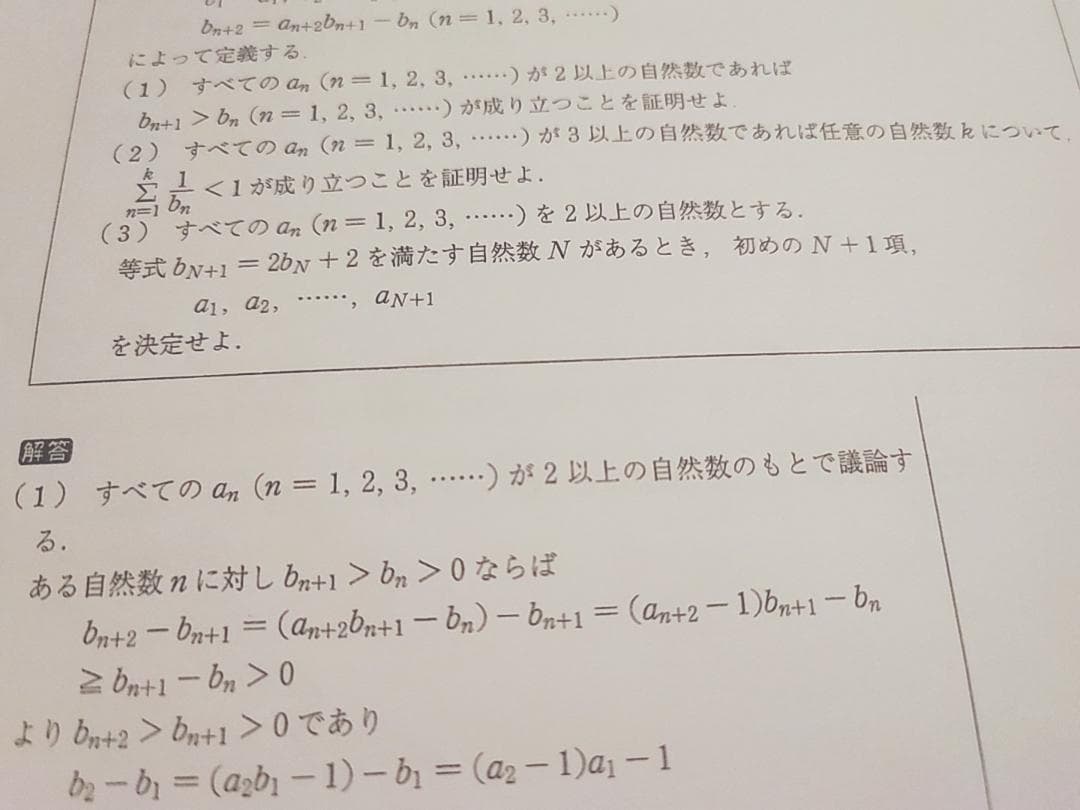 b_{n+2} = a_{n+2}b_{n+1} − b_n (n = 1, 2, 3, ……)
によって定義する.
(1) すべての a_n (n = 1, 2, 3, ……) が 2 以上の自然数であれば
b_{n+1} > b_n (n = 1, 2, 3, ……) が成り立つことを証明せよ.
(2) すべての a_n (n = 1, 2, 3, ……) が 3 以上の自然数であれば任意の自然数 k について,
\sum_{n=1}^{k} \frac{1}{b_n} < 1 が成り立つことを証明せよ.
(3) すべての a_n (n = 1, 2, 3, ……) を 2 以上の自然数とする.
等式 b_{N+1} = 2b_N + 2 を満たす自然数 N があるとき, 初めの N + 1 項,
a_1, a_2, ……, a_{N+1}
を決定せよ.
解答
(1) すべての a_n (n = 1, 2, 3, ……) が 2 以上の自然数のもとで議論す
る.
ある自然数 n に対し b_{n+1} > b_n > 0 ならば
b_{n+2} − b_{n+1} = (a_{n+2}b_{n+1} − b_n) − b_{n+1} = (a_{n+2} − 1)b_{n+1} − b_n
≧ b_{n+1} − b_n > 0
より b_{n+2} > b_{n+1} > 0 であり
b_2 − b_1 = (a_2b_1 − 1) − b_1 = (a_2 − 1)a_1 − 1